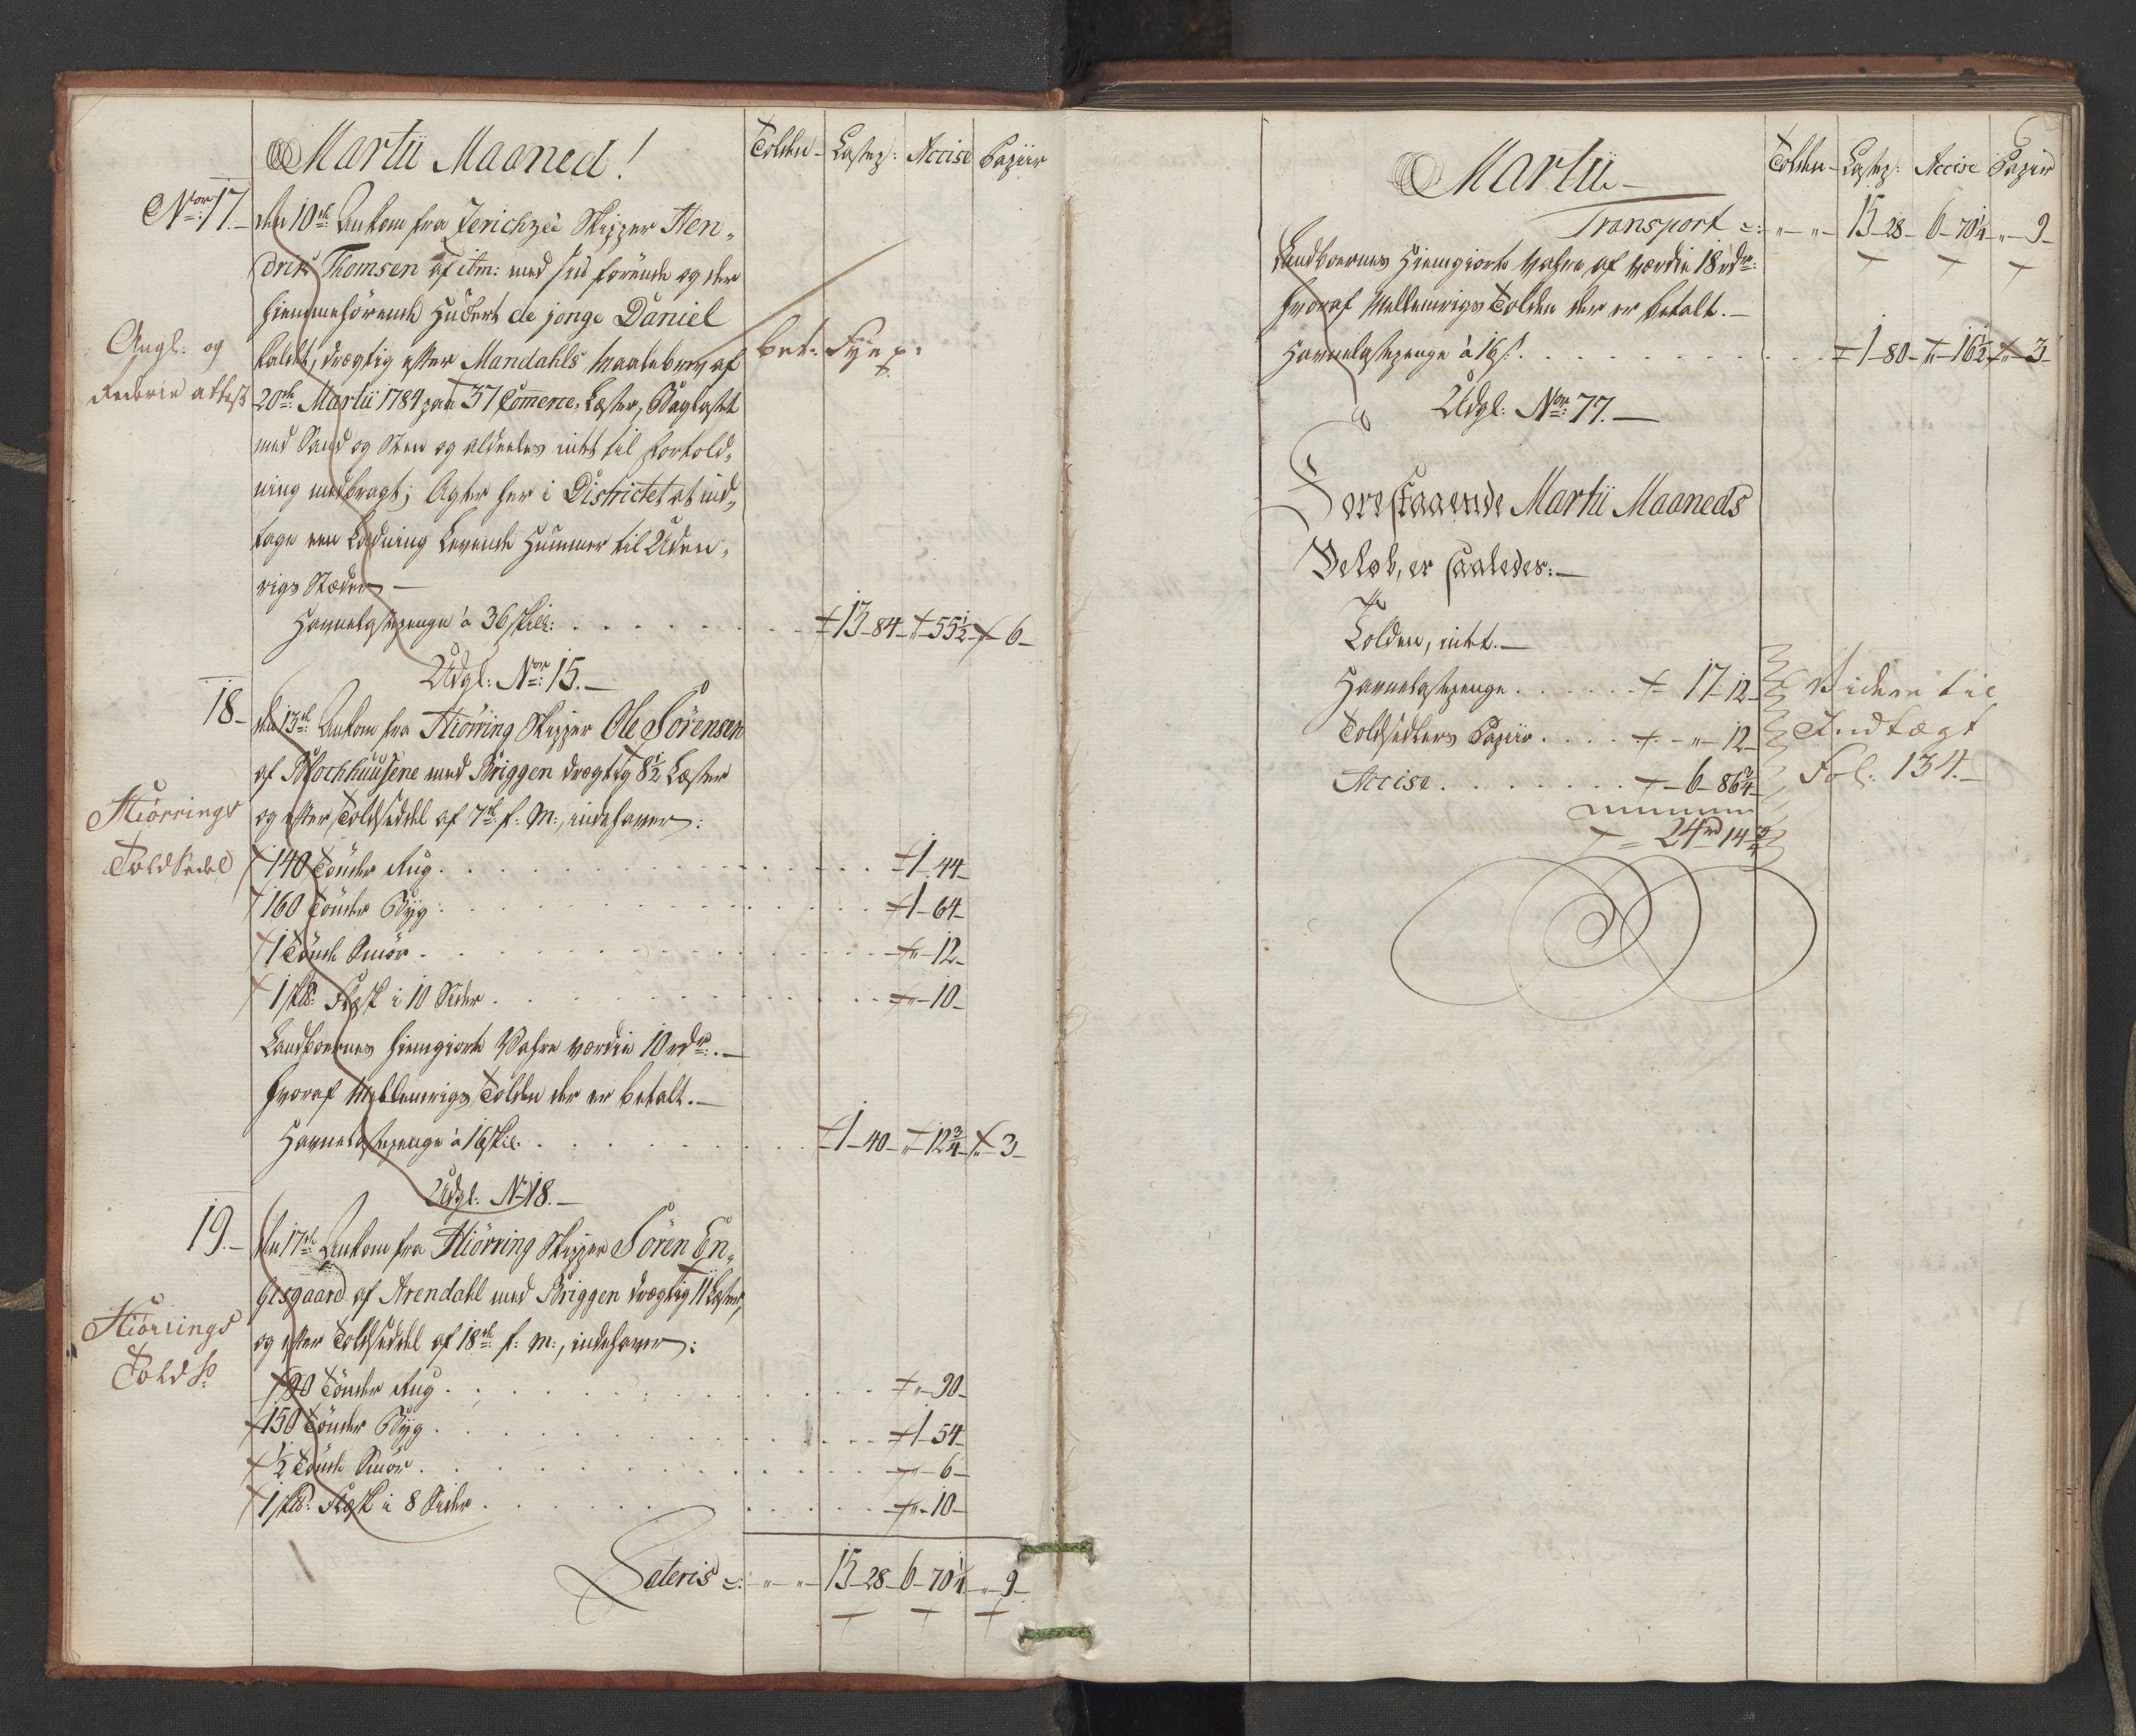 Martii Maaned!
Tolden Lastep: Accise Papiir
Nor: 17.
den 10de Ankom fra Zerichzèe Skipper Hen-
drik Thomsen af itm: med sin förende og der
hiemmehörende Huckert de jonge Daniel
kaldet, drægtig efter Mandahls Maalebrev af
20de Martii 1784 paa 37 Commerce Læster, Baglastet
med Sand og Sten og aldeeles intet til Fortold-
ning medbragt; Agter her i Districtet at ind-
tage een Ladning Levende Hummer til Uden-
rigs Stæder
Angl: og
Rederie attest
bet: Fÿe p:
Havnelastepenge à 36 skill: 13-84- 55½ 6-
Udgl: Nor: 15.
18-
den 13de Ankom fra Hiörring Skipper Ole Sörensen
af Blochhuusene med Briggen drægtig 8½ Læster
og efter Toldseddel af 7de f: M:, indehaver:
Hiörrings
Toldsedel
140 Tönder Rug 1-44-
160 Tönder Byg 1-64-
1 Tönde Smör „-12-
1 sk℔: Flesk i 10 Sider „-10-
Landboernes hiemgiorte Vahre værdie 10 rdr:
hvoraf Mellemrigs Tolden der er betalt.
Havnelastepenge à 16 skill. 1-40- „12¾ „-3-
Udgl: No 18.
19.
den 17de Ankom fra Hiörring Skipper Sören En-
gesgaard af Arendahl med Briggen drægtig 11 Læster,
og efter Toldseddel af 18de f: M:, indehaver:
Hiörrings
Tolds:
90 Tönder Rug „-90-
150 Tönder Byg 1-54-
½ Tönde Smör „-6-
1 sk℔: Flesk i 8 Sider „-10-
Lateris „-„- 15-28- 6-70¼ „-9-
Martii
Tolden Lastep: Accise Papiir
Transport „-„- 15-28- 6-70¼ „-9-
Landboernes Hiemgiorte Vahre af Værdie 18 rdr:
hvoraf Mellemrigs Tolden der er betalt.
Havnelastepenge à 16 s. 1-80- „-16½ „-3
Udgl: Nor: 77.
Forestaaende Martii Maaneds
Beløb, er saaledes:
Tolden, intet.
Havnelastepenge 17-12-
Toldsedlers Papiir „-12-
Accise 6-86¾
24rd 14¾
Videre til
Indtægt
Fol: 134.